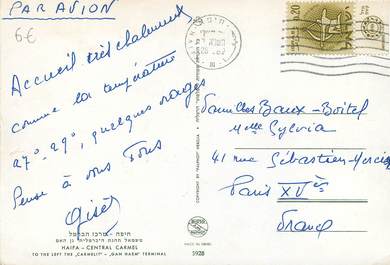 PAR AVION
6€
Accueil très chaleureux
comme la température
27°-29°, quelques nuages
Pense à vous Tous
Gisèl
חיפה - מרכז הכרמל
HAIFA - CENTRAL CARMEL
TO THE LEFT THE „CARMELIT" - „GAN HAEM" TERMINAL
COPYRIGHT BY "PALPHOT" HERZLIA
MADE IN ISRAEL
5928
0.20
Familles Baux-Boitel
Melle Sylvia
41 rue Sébastien-Mercier
Paris XVès
France